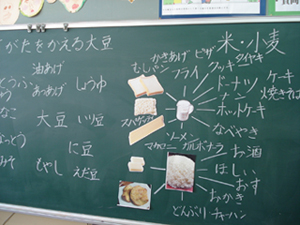 がたをかえる大豆
油あげ
あつあげ
しょうゆ
大豆
いり豆
に豆
もやし
えだ豆
米・小麦
かきあげ
ピザ
タイヤキ
むしパン
フライ
クッキー
ドーナツ
ケーキ
 パン
焼きそば
ホットケーキ
スパゲッティ
なべやき
ソーメン
マカロニ
カルボナーラ
お酒
ほしい
おす
おかき
どんぶり
チャーハン